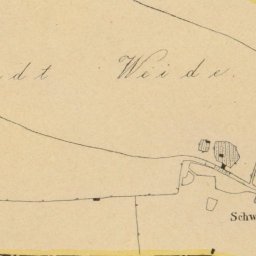 dt Weide.
Schw